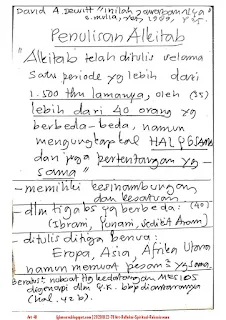 David A. Dewitt "Inilah Jawabannya"
s. mulia, 1999,
Penulisan Alkitab
"Alkitab telah ditulis selama
satu periode yg lebih dari
1.500 thn lamanya, oleh (35)
lebih dari 40 orang yg
berbeda-beda, namun
mengungkapkan HAL yg SAMA
dan juga pertentangan yg
sama"
- memiliki kesinambungan
dan kesatuan
- dlm tiga bs yg berbeda: (40)
(Ibrani, Yunani, sedikit Aram)
ditulis ditiga benua:
Eropa, Asia, Afrika Utara
namun memuat pesan2 yg sama,
nubuat ttg kedatangan MESIAS
digenapi dlm
(hal. 42 b).